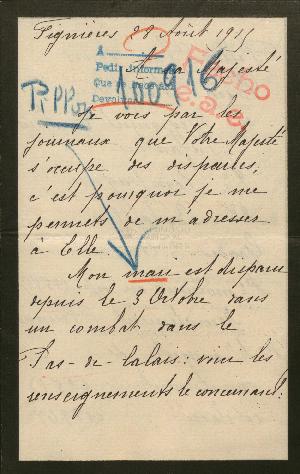 Fignières 28 Août 1915
A sa Majesté
Je vois par les
journaux que Votre Majesté
s'occupe des disparus,
c'est pourquoi je me
permets de m'adresser
à Elle.
Mon mari est disparu
depuis le 3 Octobre dans
un combat dans le
Pas-de-Calais: voici les
renseignements le concernant: